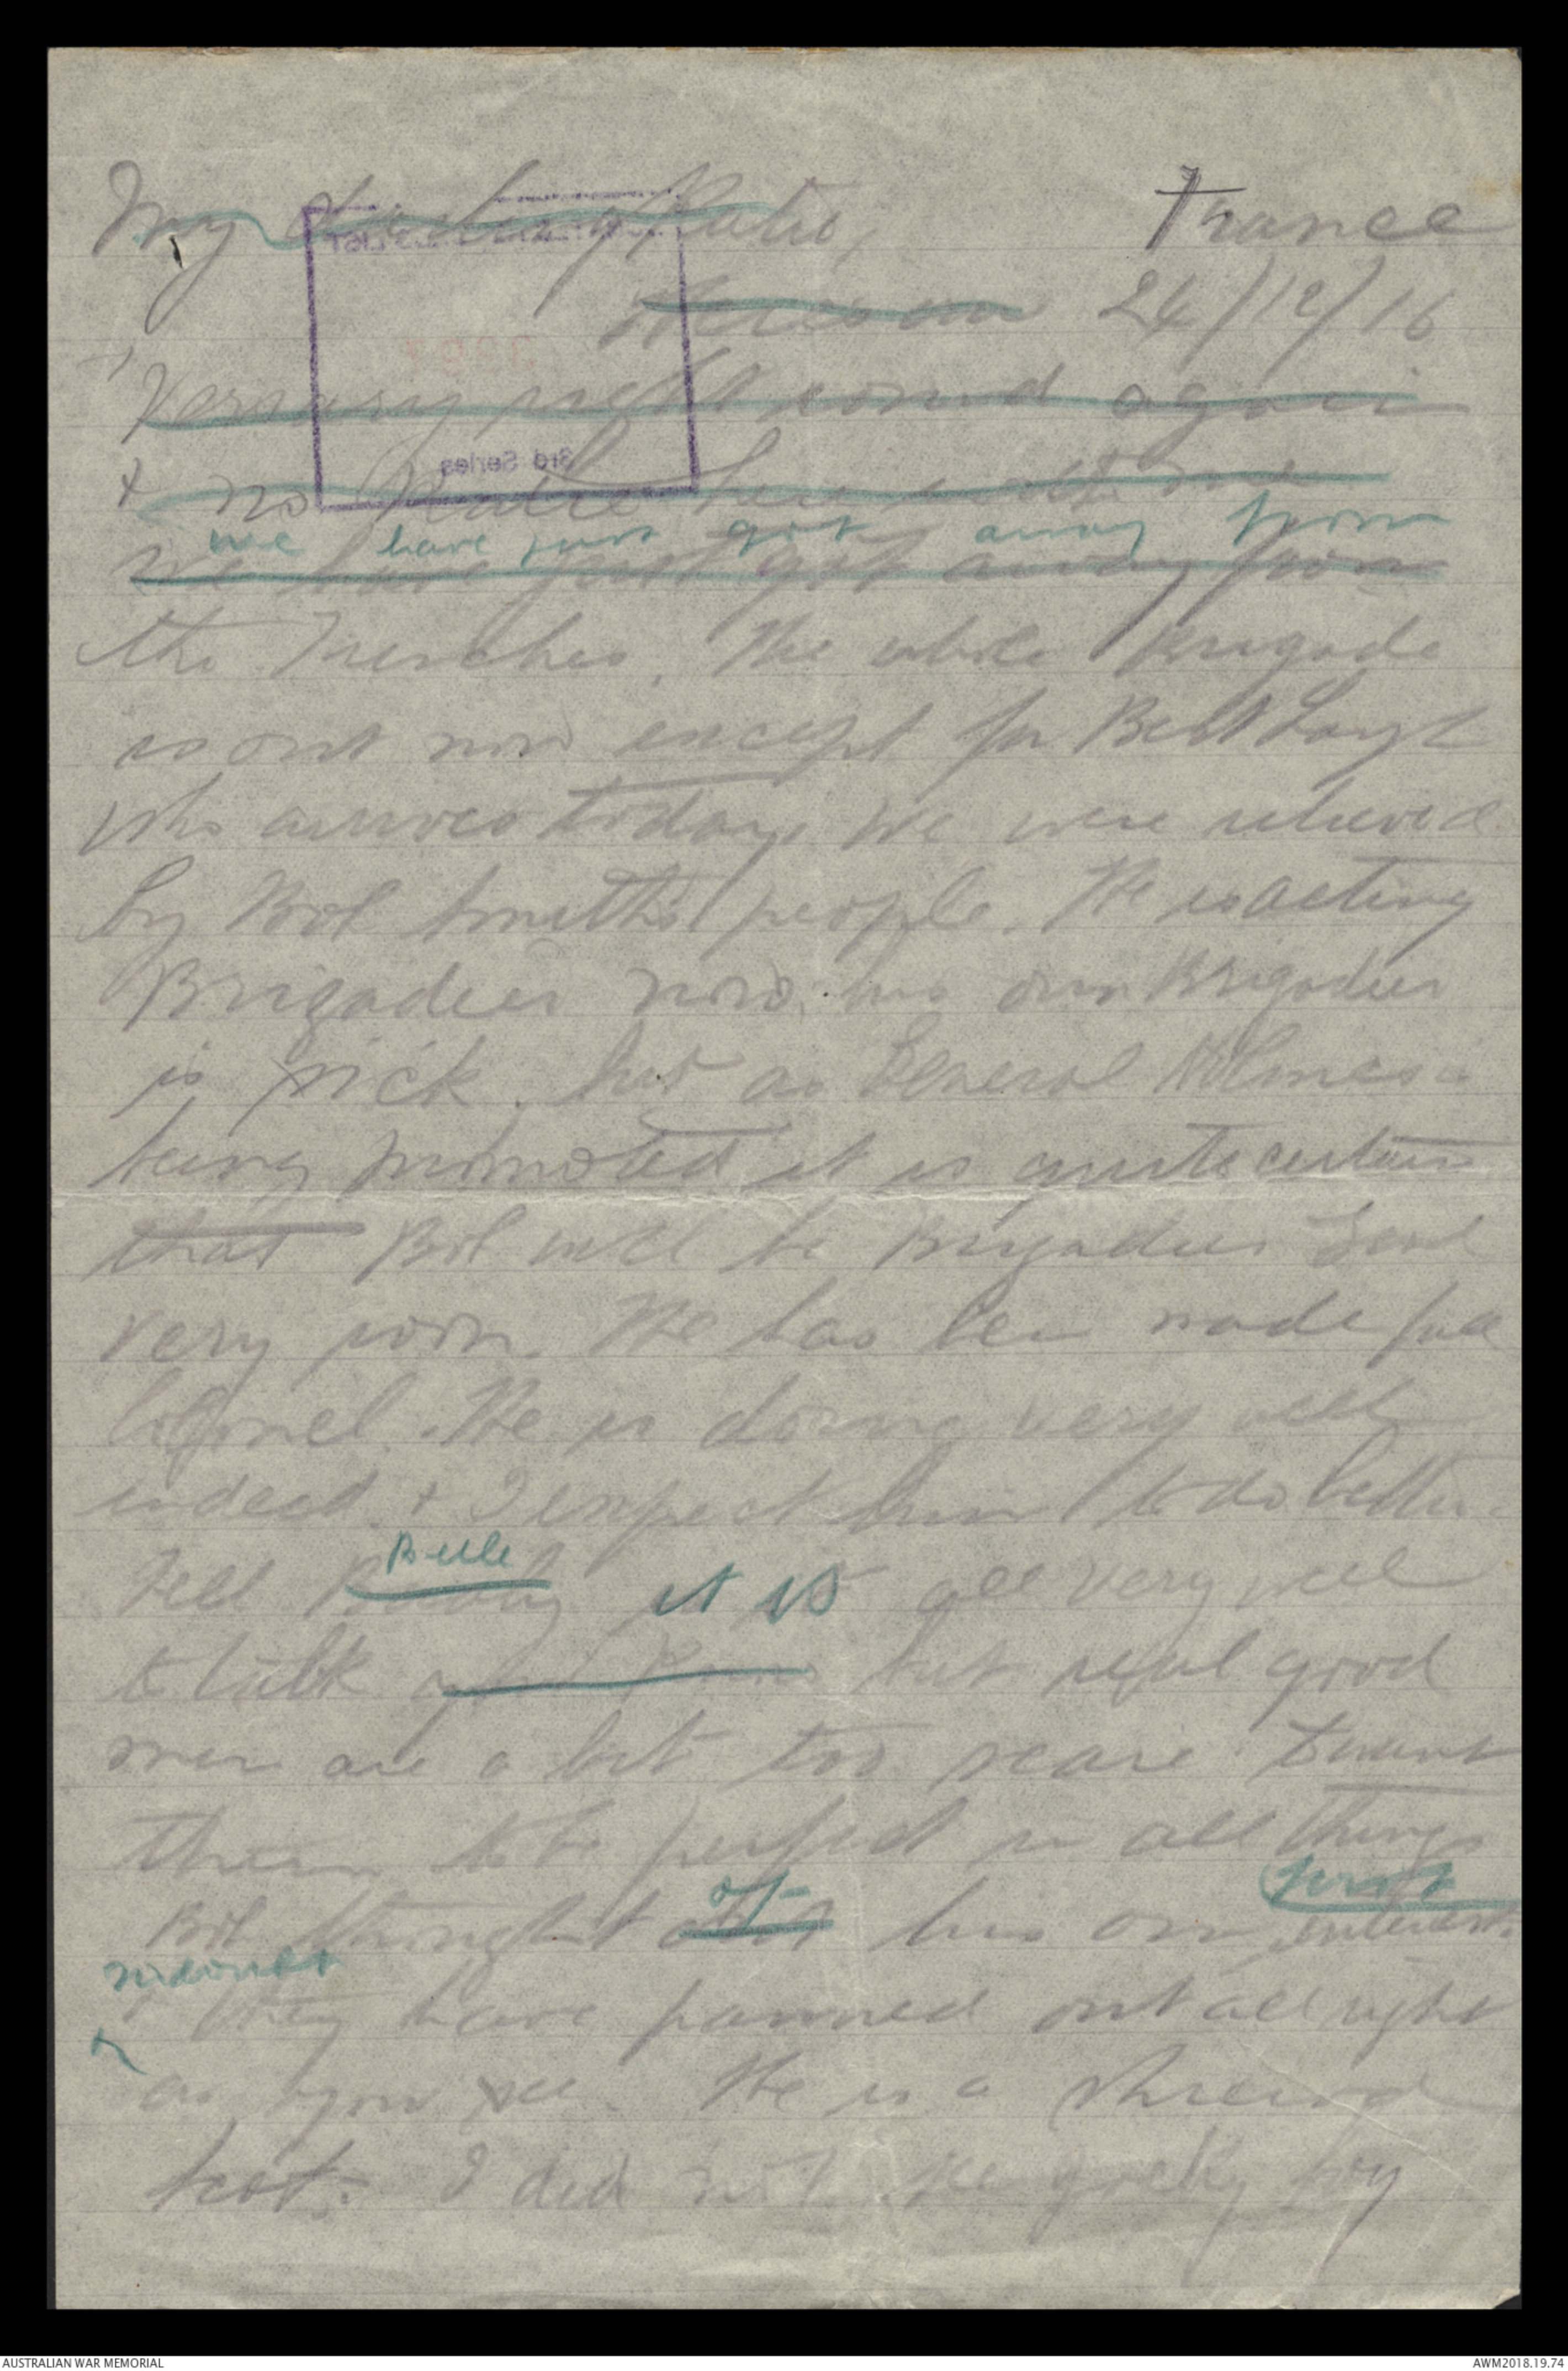 My darling Katie,
France
24/12/16
versary right round again
+ no Katie here with me
we have just got away from
We have just got away from
the Trenches. The whole Brigade
is out now except for Bert Layh
who arrives today. We were relieved
by Bob Smith's people. He is acting
Brigadier now, his own Brigadier
is sick, but as General Holmes is
being promoted it is quite certain
that Bob will be Brigadier Genl
very soon. He has been made full
Colonel. He is doing very well
indeed, + I expect him to do better.
Belle
Tell it is all very well
to talk but real good
men are a bit too scare to want
them to be perfect in all things
of first
Bob thought his own interest.
no doubt
+ they have panned out all right
as you see. He is a shrewd
I did not see Geelong boy
3rd Series
AUSTRALIAN WAR MEMORIAL
AWM2018.19.74